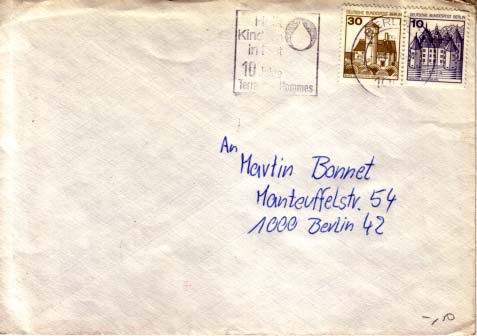 Kinder
in Not
10 Jahre
Terre Hommes
30 DEUTSCHE BUNDESPOST BERLIN
10 DEUTSCHE BUNDESPOST BERLIN
An
Martin Bonnet
Manteuffelstr. 54
1000 Berlin 42
-,10